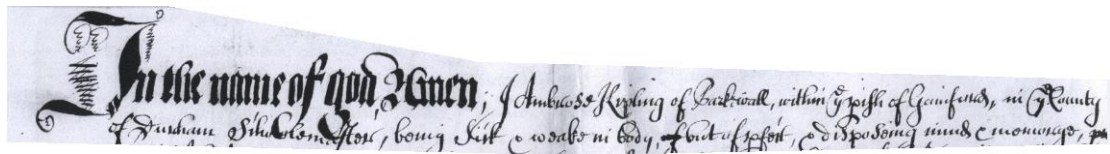 In the name of god Amen, I Ambrose Kipling of Barkwall, within ye pish of Gainford, in ye County
of Durham, being Sick & weake in body, but of pfect, & disposeing minde & memorye,